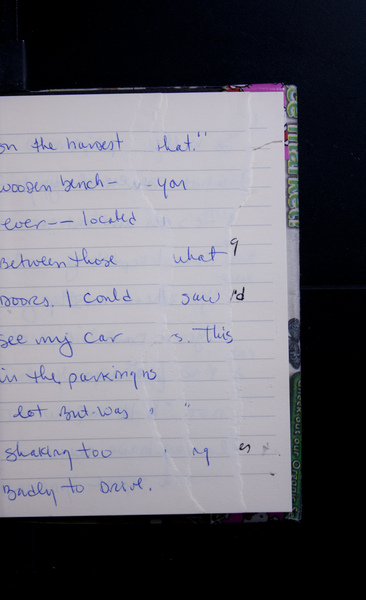 on the hardest that."
wooden bench- - you
ever-- located
Between those what
Doors. I could saw
see my car s. This
in the parking
lot But. was
shaking too ng
Badly to Drive.